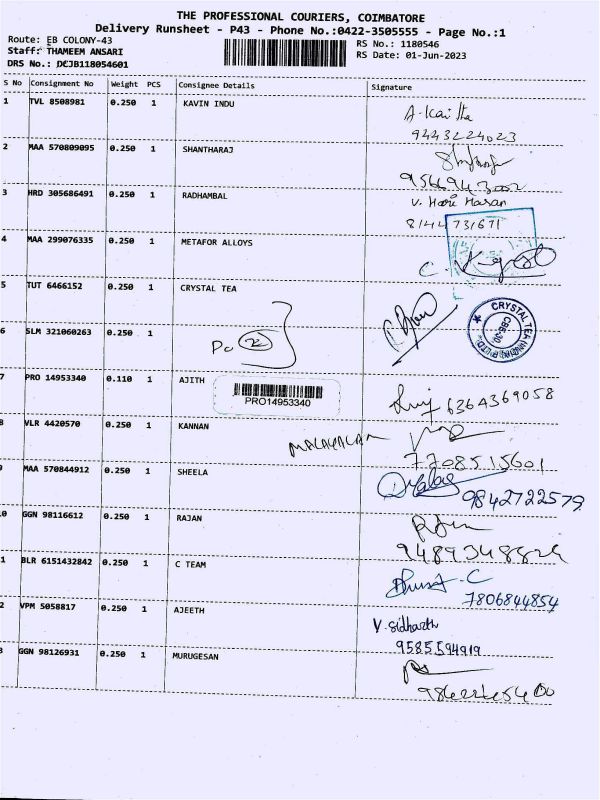 THE PROFESSIONAL COURIERS, COIMBATORE
Delivery Runsheet - P43 - Phone No.:0422-3505555 - Page No.:1
Route: EB COLONY-43
Staff: THAMEEM ANSARI
DRS No.: DCJB118054601
RS No.: 1180546
RS Date: 01-Jun-2023
S No Consignment No Weight PCS Consignee Details Signature
1 TVL 8508981 0.250 1 KAVIN INDU
9443224023
2 MAA 570809095 0.250 1 SHANTHARAJ
3 HRD 305686491 0.250 1 RADHAMBAL V. Hari Haran
4 MAA 299076335 0.250 1 METAFOR ALLOYS
5 TUT 6466152 0.250 1 CRYSTAL TEA
CRYSTAL TEA
CBE-30
6 SLM 321060263 0.250 1
7 PRO 14953340 0.110 1 AJITH
PRO14953340
6364369058
8 VLR 4420570 0.250 1 KANNAN
MALAYALAM
7708515601
9 MAA 570844912 0.250 1 SHEELA
9842722579
0 GGN 98116612 0.250 1 RAJAN
1 BLR 6151432842 0.250 1 C TEAM
7806844854
2 VPM 5058817 0.250 1 AJEETH
V. Sidharth
9585594919
3 GGN 98126931 0.250 1 MURUGESAN